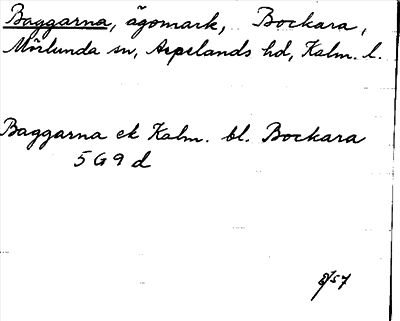 Baggarna, ägomark, Bockara,
Mörlunda sn, Aspelands hd, Kalm. l.
Baggarna ek Kalm. bl. Bockara
5 G 9 d